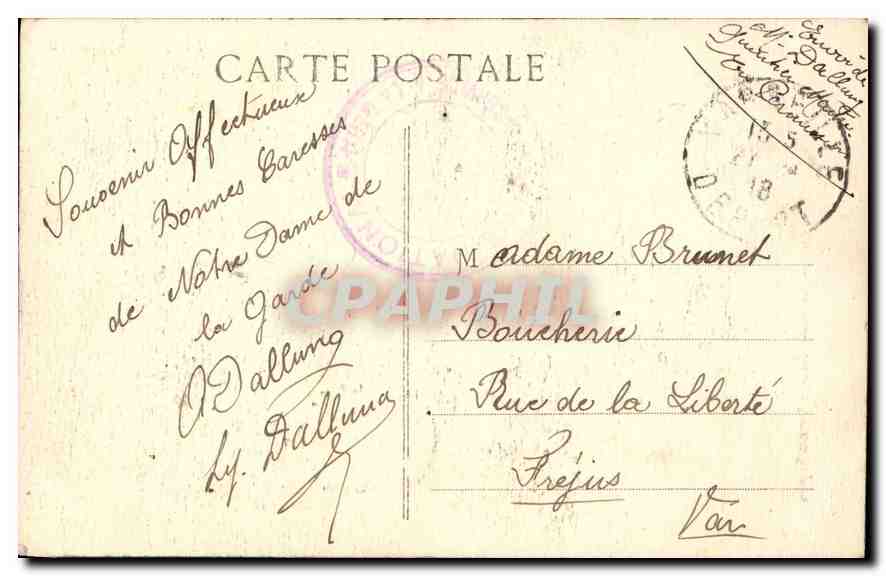 CARTE POSTALE
Envoi de
M. Dallung
Souvenir Affectueux
et Bonnes Caresses
de Notre Dame de
la Garde
Dallung
Ly. Dallung
Madame Brunet
Boucherie
Rue de la Liberté
Fréjus
Var
CPAPHIL